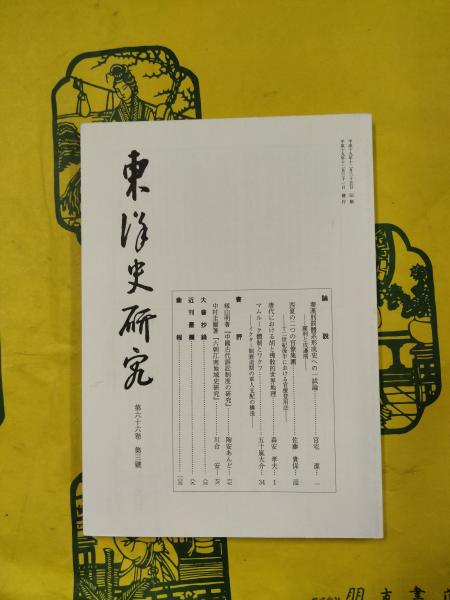 東洋史研究
第六十六卷 第三號
平成十九年十二月二十五日 印刷
平成十九年十二月三十一日 發行
論說
秦漢刑罰體系形成史への一試論
――腐刑と戍邊刑――
宮宅 潔
西夏の二つの官僚集團
――十二世紀後半における官僚登用法――
佐藤 貴保
唐代における胡と佛教的世界地理
森安 孝夫 1
マムルーク體制とワクフ
――イクター制衰退期の軍人支配の構造――
五十嵐大介 34
書評
籾山明著『中國古代訴訟制度の研究』
陶安あんど
中村圭爾著『六朝江南地域史研究』
川合 安
大會抄錄
近刊叢欄
彙報
朋友書店